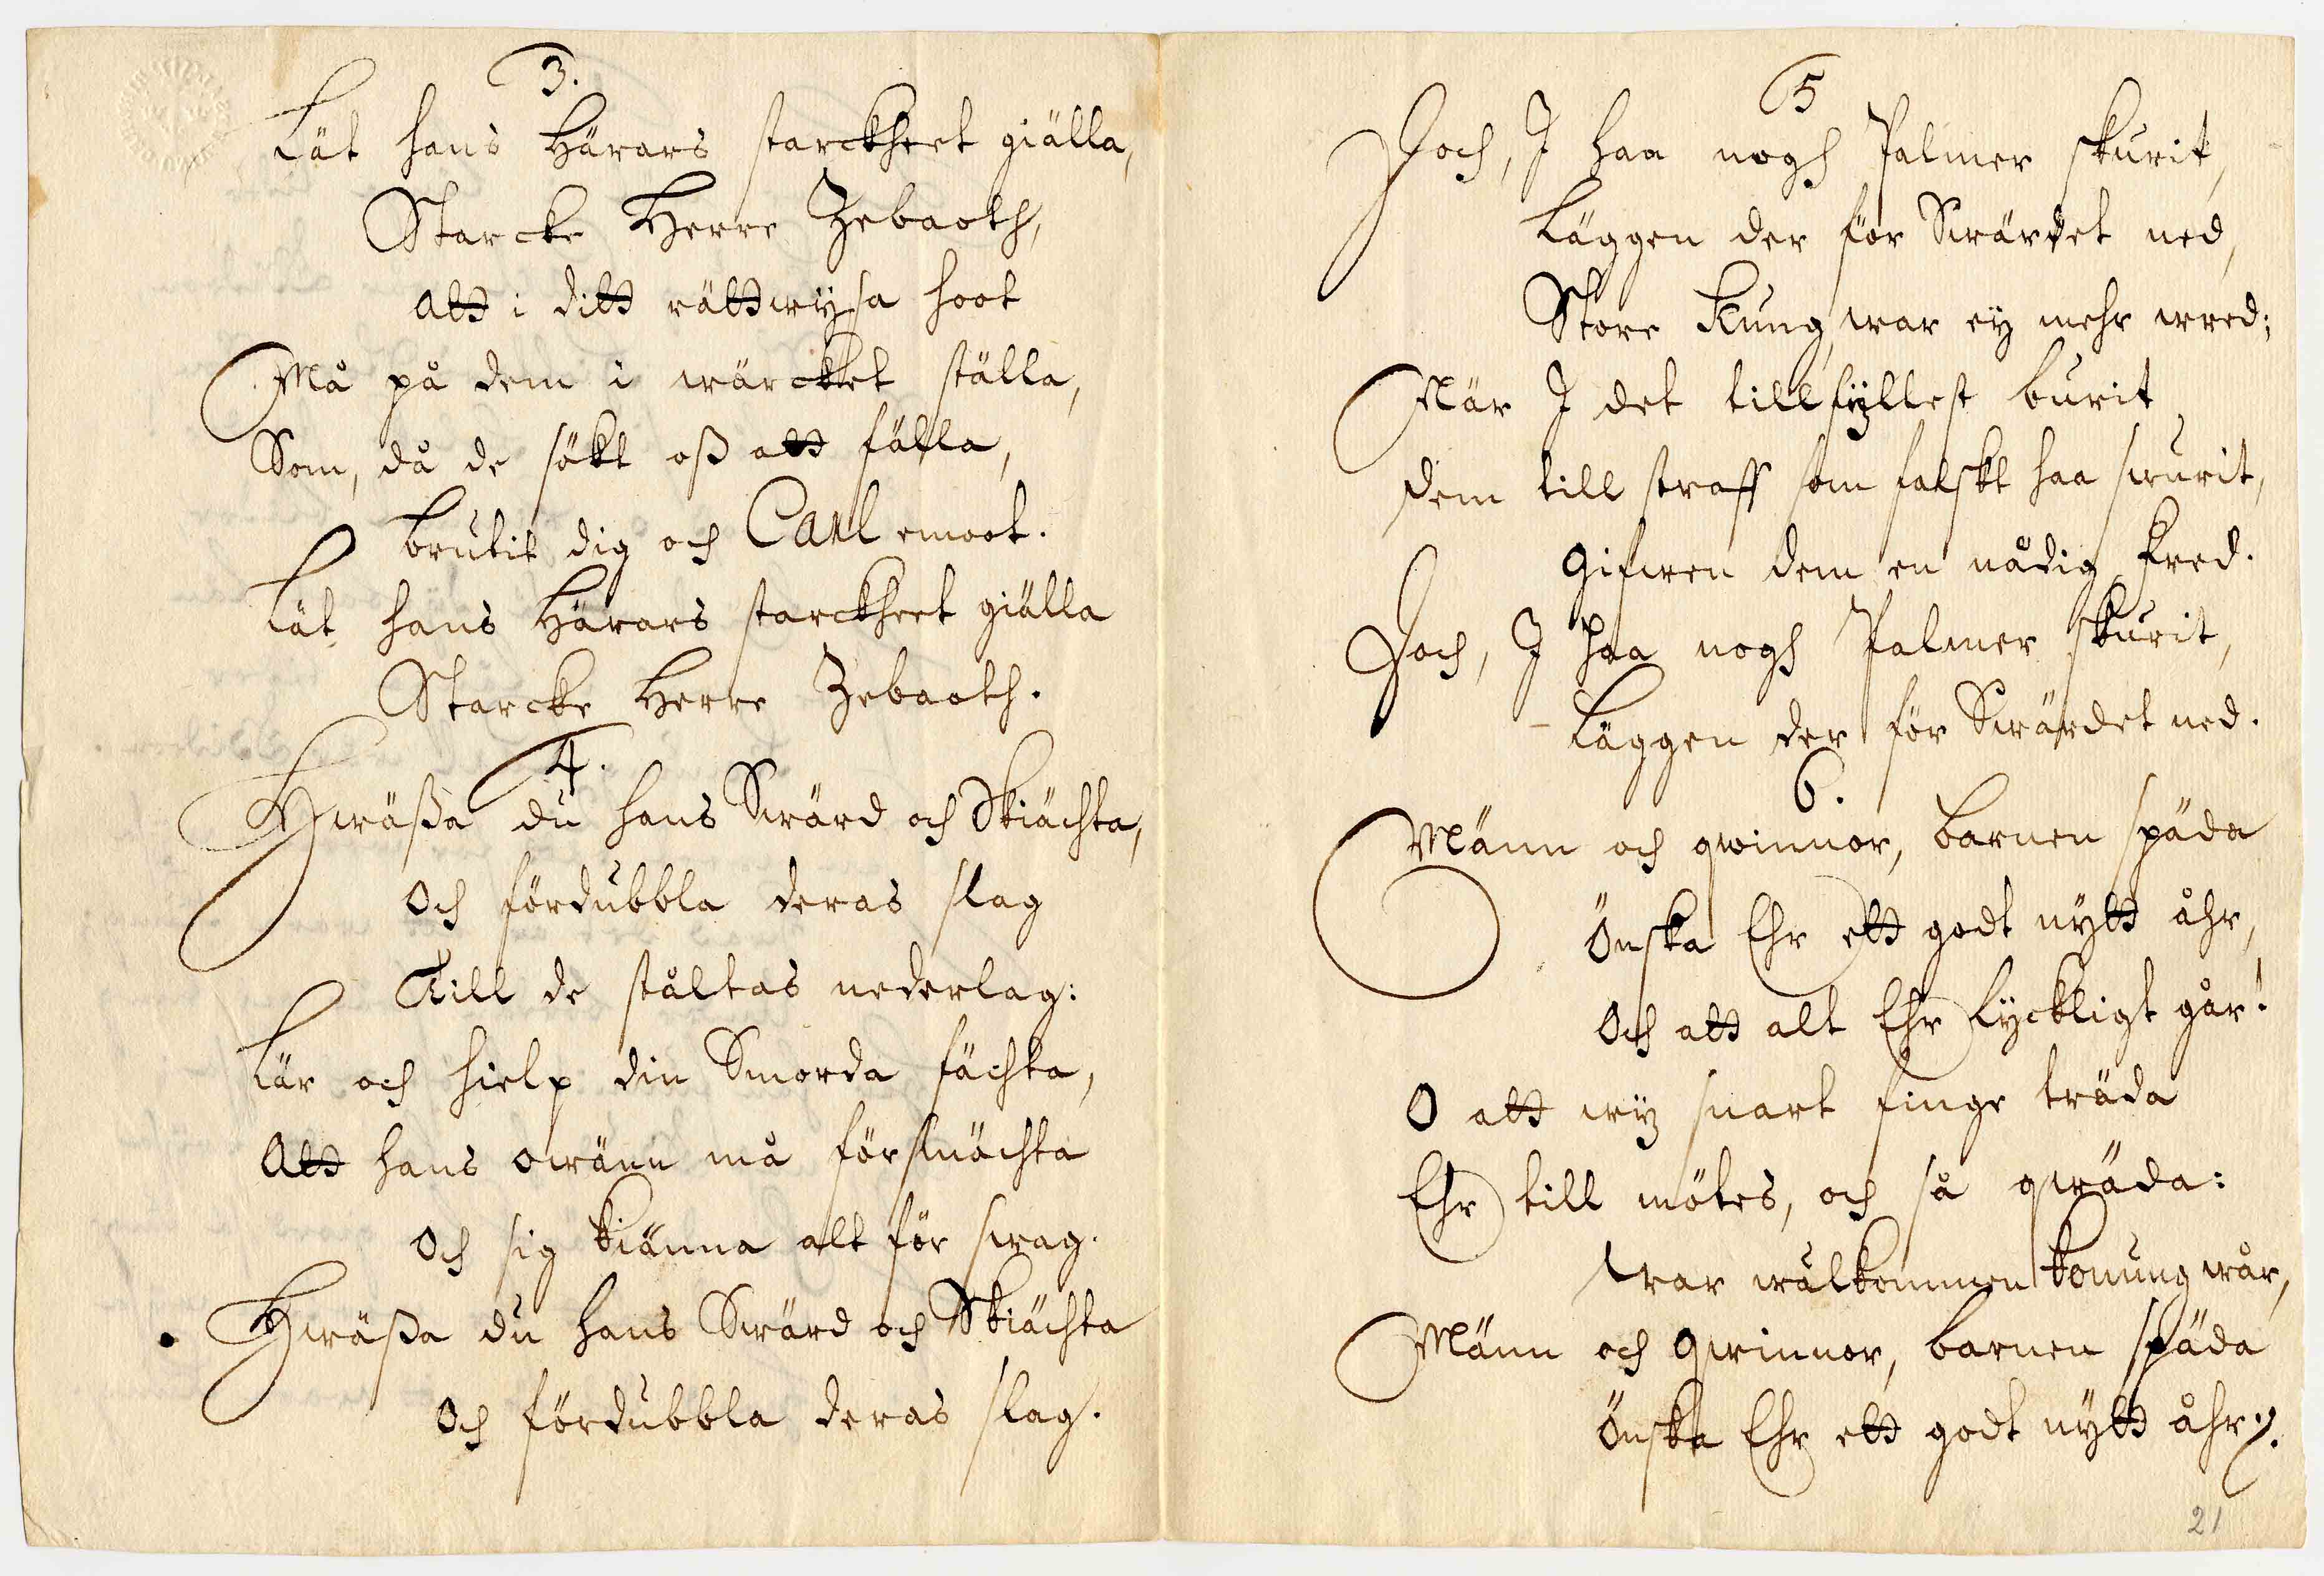 3.
Lät hans Härars starckheet giälla,
Starcke Herre Zebaoth,
att i ditt rättwÿsa hoot
Må på dem i wärcket ställa,
Som, då de sökt oß att fälla,
brutit dig och Carl emoot.
Lät hans Härars starckheet giälla
Starcke Herre Zebaoth.
4.
Hwäßa du hans Swärd och Skiächta,
Och fördubbla deras slag
Till de ståltas nederlag:
Lär och hielp din Smorda fächta,
Att hans owänn må försmächta
Och sig kiänna alt för swag.
Hwäßa du hans Swärd och Skiächta
Och fördubbla deras slag.
5
Doch, I haa nogh Palmer skurit,
Läggen der för Swärdet ned,
Store Kung, war eÿ mehr wred;
När I det tillfÿllest burit
dem till straff som falskt haa swurit,
Gifwen dem en nådig Fred.
Doch, I haa nogh Palmer skurit,
Läggen der för Swärdet ned.
6.
Männ och qwinnor, barnen späda
Önska Ehr ett godt nÿtt åhr,
Och att alt Ehr lÿckligt går!
O att wÿ snart finge träda
Ehr till mötes, och så qwäda:
war wälkommen konung wår,
Männ och Qwinnor, barnen späda
Önska Ehr ett godt nÿtt åhr.
21